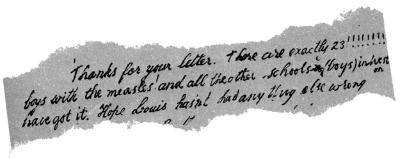 Thanks for your letter. There are exactly 23!!!!!!!!
boys with the measles! and all the other schools (boys) in
have got it. Hope Louis hasn't had any thing else wrong on